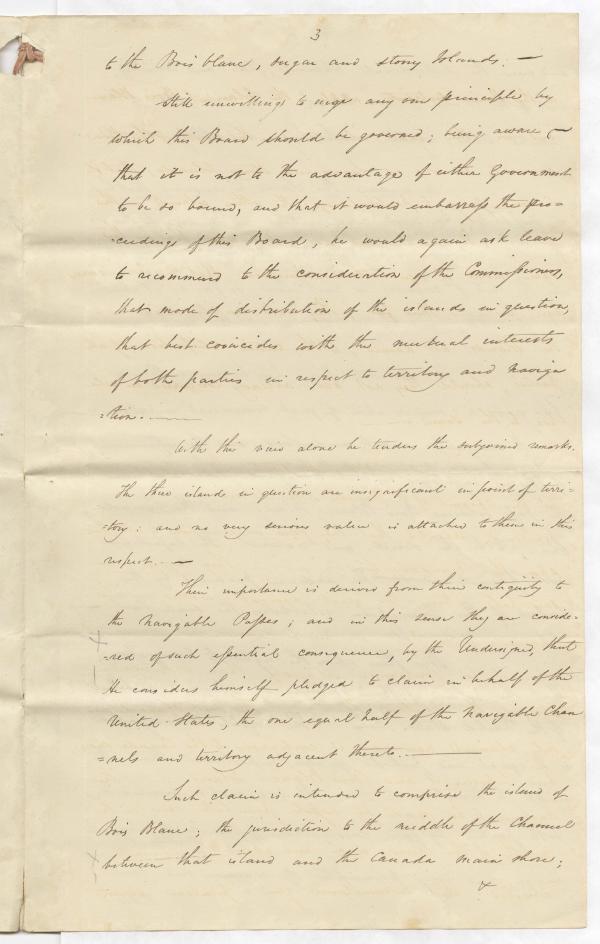 3
to the Bois blanc, sugar and stony Islands. —
Still unwilling to urge any one principle by
which this Board should be governed; being aware —
that it is not to the advantage of either Government
to be so bound, and that it would embarrass the pro=
=ceedings of this Board, he would again ask leave
to recommend to the consideration of the Commissioners,
that mode of distribution of the islands in question,
that best coincides with the mutual interests
of both parties in respect to territory and naviga
=tion. —
With this view alone he tenders the subjoined remarks.
The three islands in question are insignificant in point of terri=
=tory: and no very serious value is attached to them in this
respect. —
Their importance is derived from their contiguity to
the navigable Passes; and in this sense they are conside=
=red of such essential consequence, by the Undersigned, that
He considers himself pledged to claim in behalf of the
United States, the one equal half of the navigable Chan
=nels and territory adjacent thereto. —
Such claim is intended to comprise the island of
Bois Blanc; the jurisdiction to the middle of the Channel
between that island and the Canada main shore;
&